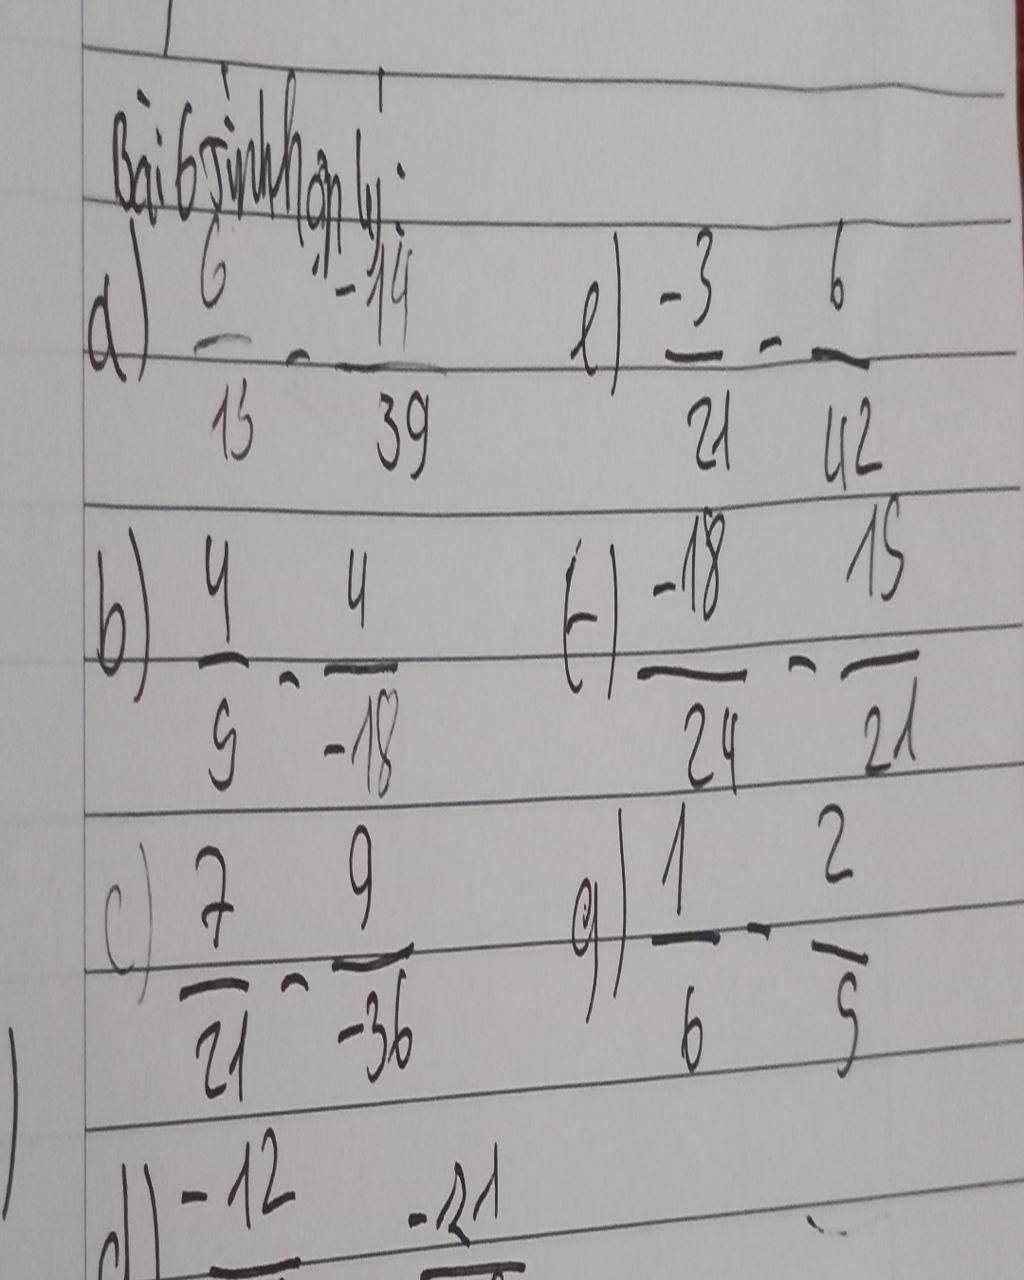 Bài 6 Tính hợp lý:
a) 6/13 - -14/39
e) -3/21 - 6/42
b) 4/5 - 4/-18
f) -18/24 - 15/21
c) 7/21 - 9/-36
g) 1/6 - 2/5
d) -12 -21